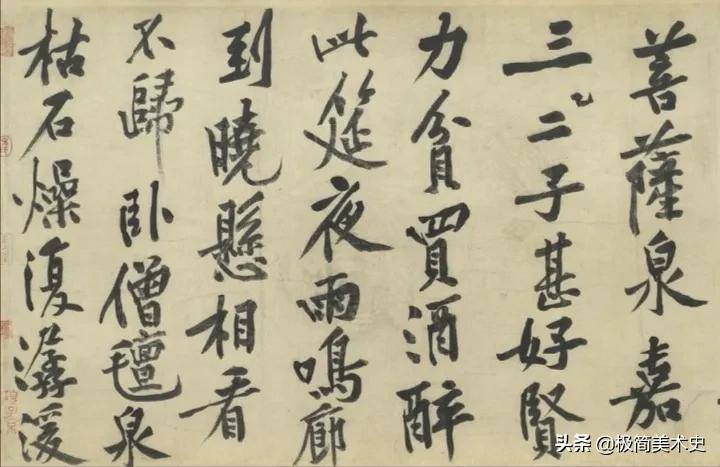 菩薩泉嘉
三二子甚好賢
力貧買酒醉
此筵夜雨鳴廊
到曉懸相看
不歸卧僧氈泉
枯石燥復潺湲
头条 @极简美术史